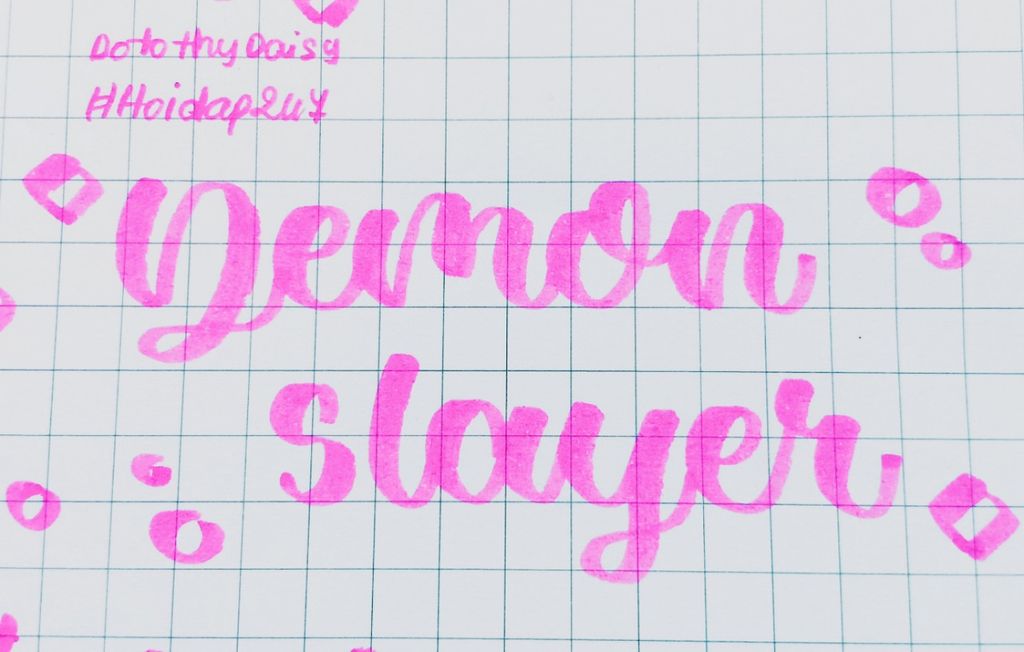 DotothyDaisy
#Hoidap247
Demon
Slayer